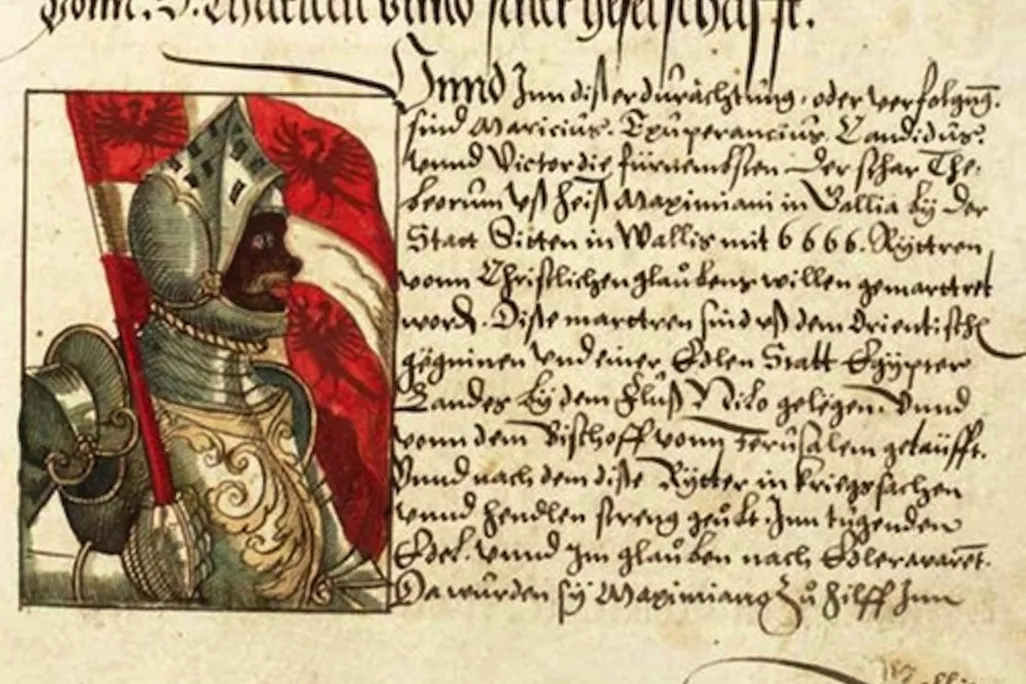 vonn. S. Mauritzi vnnd siner geselschafft.
Vnnd Inn diser durächtung, oder verfolgūg.
sind Mauricius. Exuperancius, Candidus.
vnnd Victor die fürnembsten der schar The-
beorum vß heiß Maximiani in Gallia by der
Statt Sitten in Wallis mit 6666. Ryttren
vonn Christlichen glaubens willen gemarttret
wordē. Dise marttren sind vß dem Orientischē
gegninen vnd einer Edlen Statt Egypter
Landes by dem Fluß Nilo gelegen. Vnnd
vonn dem Bischoff vonn Jerusalem getäufft.
Vnnd nach dem dise Rytter in kriegssachen
vnnd hendlen streng geübt. Inn tugenden
Edel. vnnd Im glauben nach Edler warēt.
Da wurden sy Maximiano zu hilff Inn